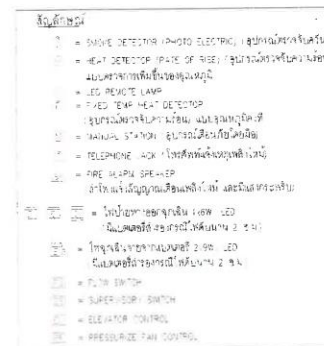 สัญลักษณ์
= SMOKE DETECTOR (PHOTO ELECTRIC) (อุปกรณ์ตรวจจับควัน
= HEAT DETECTOR (RATE OF RISE) (อุปกรณ์ตรวจจับความร้อน
แบบตรวจการเพิ่มขึ้นของอุณหภูมิ
= LED REMOTE LAMP
= FIXED TEMP HEAT DETECTOR
(อุปกรณ์ตรวจจับความร้อน) แบบอุณหภูมิคงที่
= MANUAL STATION (อุปกรณ์เตือนภัยโดยมือ)
= TELEPHONE JACK (โทรศัพท์แจ้งเหตุเพลิงไหม้)
= FIRE ALARM SPEAKER
ลำโพงแจ้งสัญญาณเตือนเพลิงไหม้ และมีแสงกระพริบ
= ไฟป้ายทางออกฉุกเฉิน LED
(มีแบตเตอรี่สำรองกรณีไฟดับนาน 2 ช.ม.)
= ไฟฉุกเฉินจากแบตเตอรี่ LED
มีแบตเตอรี่สำรองกรณีไฟดับนาน 2 ช.ม.
= FLOW SWITCH
= SUPERVISORY SWITCH
= ELEVATOR CONTROL
= PRESSURIZE FAN CONTROL